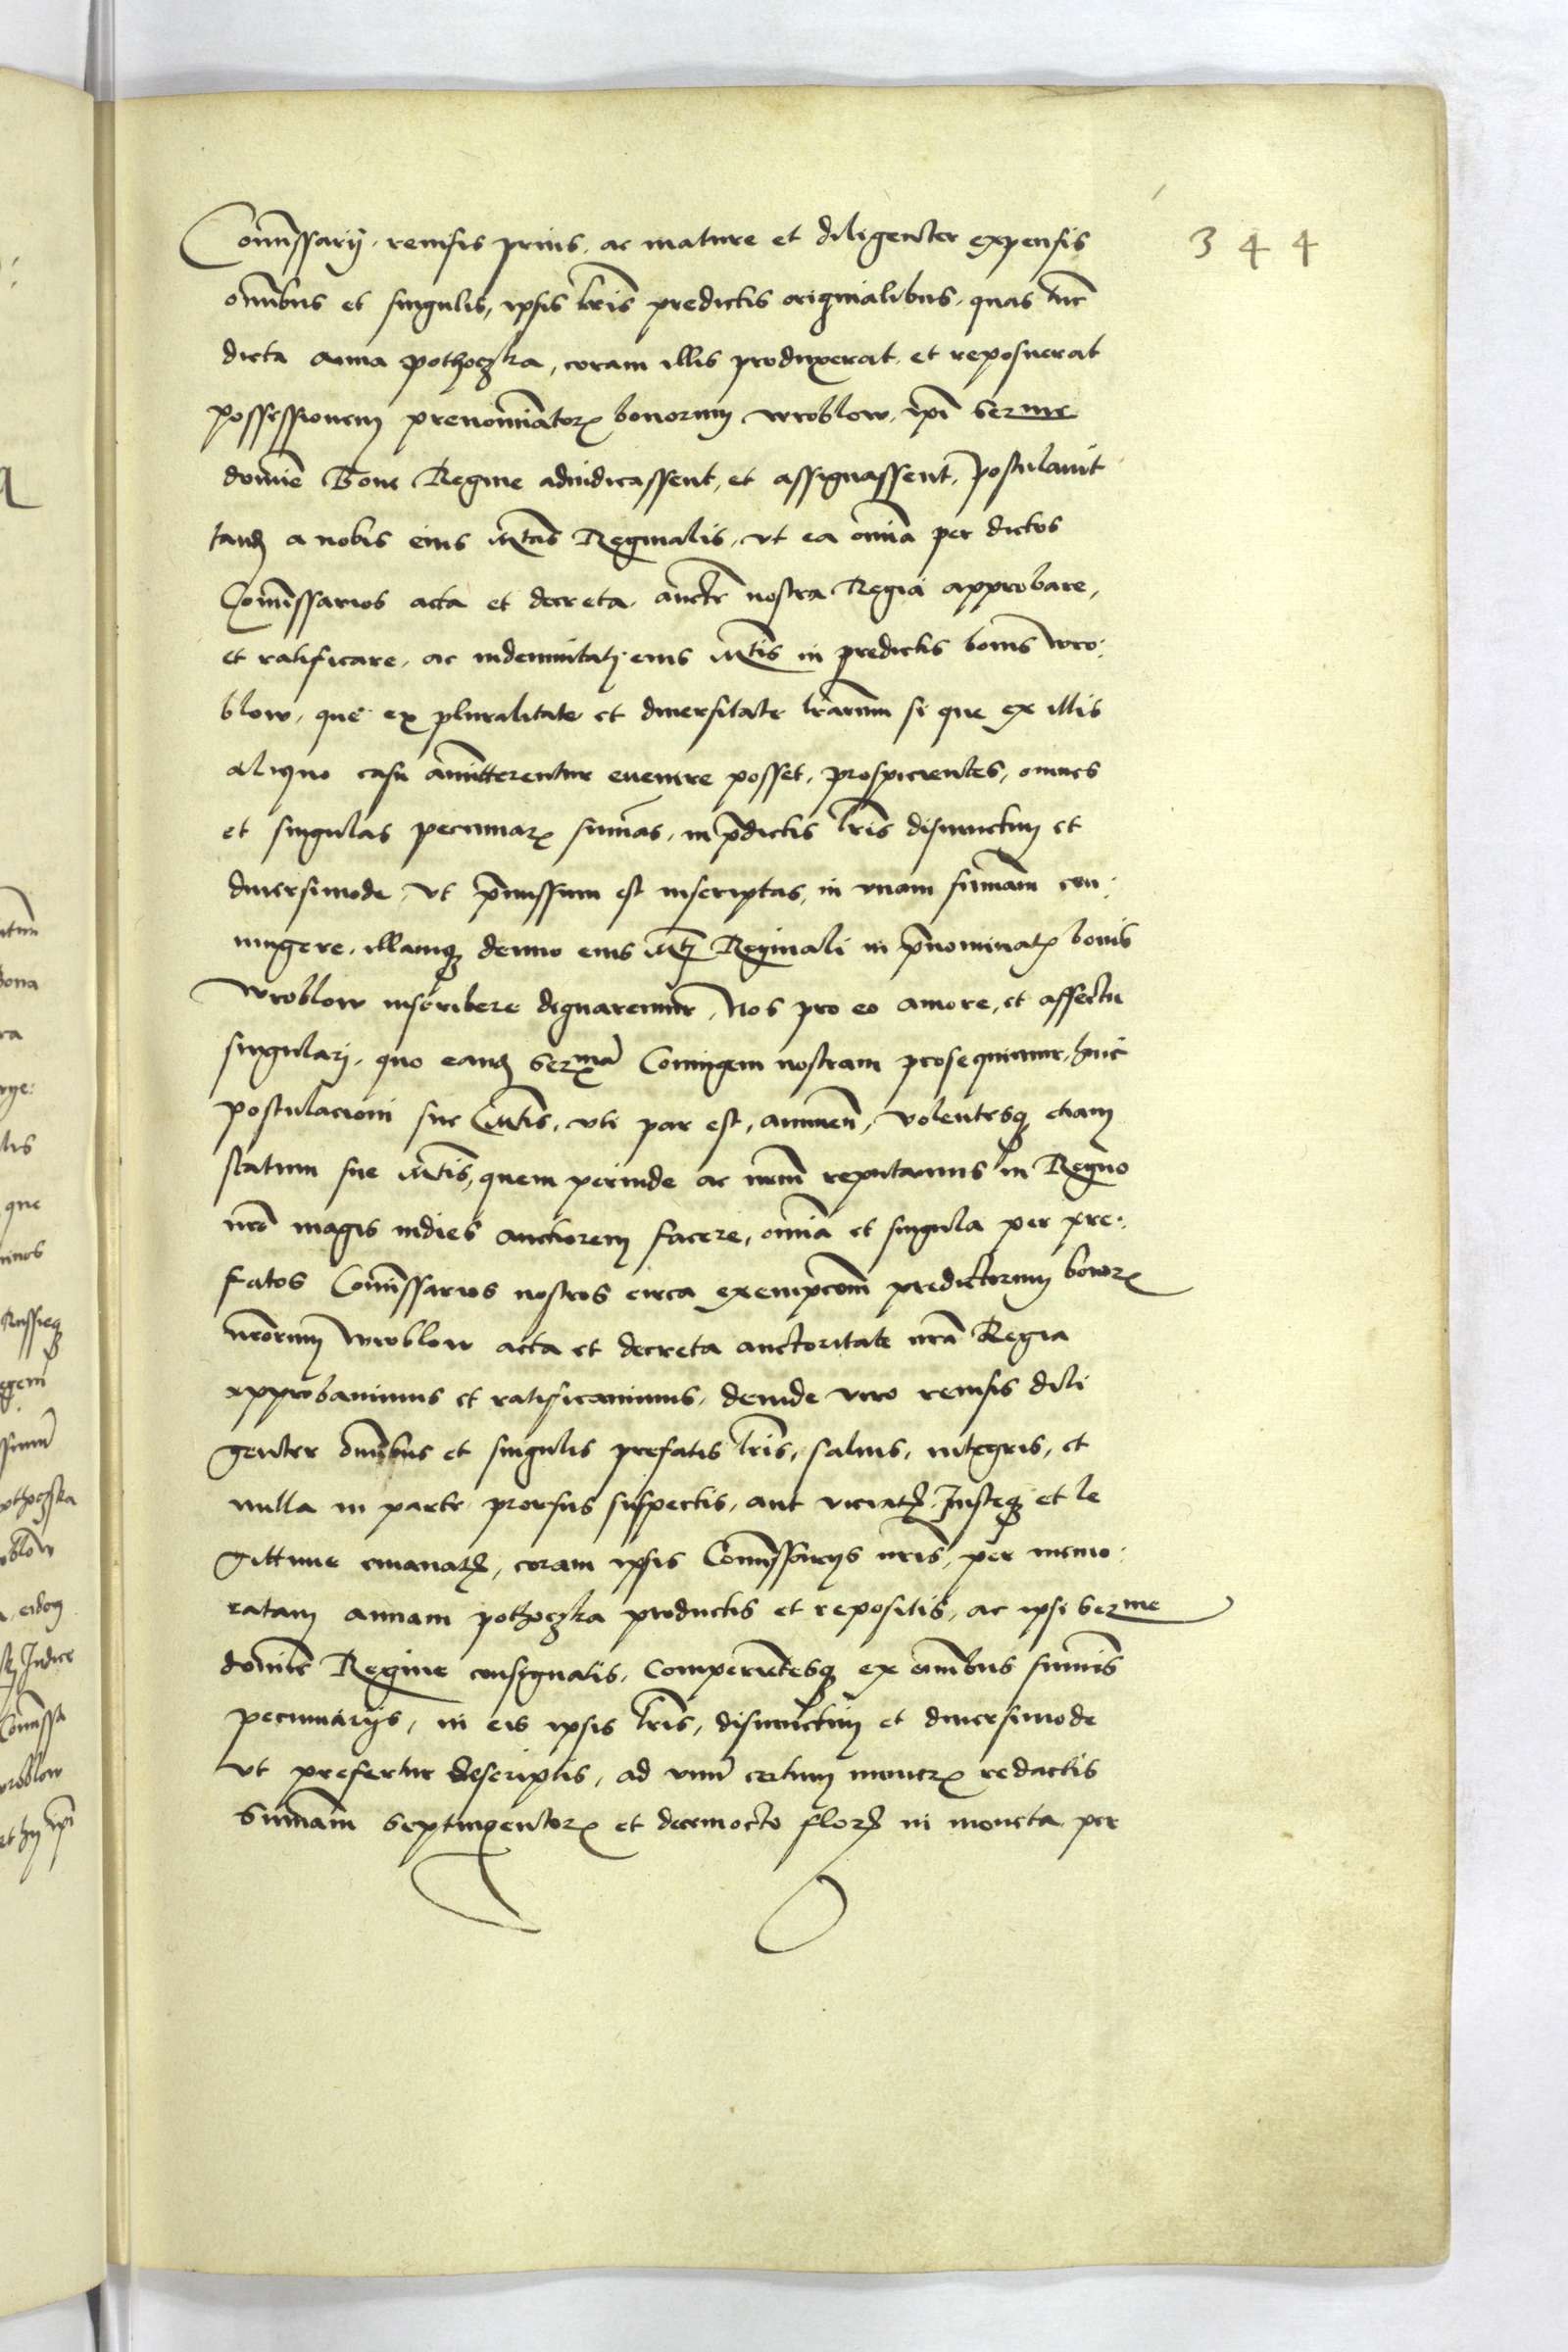 344
Com̄issarij. reuisis prius. ac mature et diligenter expensis
om̄ibus et singulis, ipsis lr̄is predictis originalibus. quas tūc
dicta anna pothoczka, coram illis produxerat. et reposuerat
possessionem prenominator bonorum wroblow. ip̄i Serme
domine Bone Regine adiudicassent, et assignassent, postulauit
tandem a nobis eius Mtās Reginalis, vt ea om̄ia per dictos
Com̄issarios acta et decreta. auctte nostra Regia approbare,
et ratificare. ac indemnitati eius Mtīs in predictis bonis wro:
blow. que ex pluralitate et diuersitate lr̄arum si que ex illis
aliquo casu amitterentur euenire posset, prospicientes, omnes
et singulas pecuniar sum̄as, in p̄dictis lr̄is disiunctim et
diuersimode. vt p̄missum est inscriptas, in vnam sum̄am con:
iungere. illamq denuo eius Mti Reginali in p̄nominatis bonis
wroblow inscribere dignaremur. Nos pro eo amore, et affectu
singulari. quo eandem Sermā Coniugem nostram prosequimur, huic
postulacioni sue Mtīs. vti par est, annuen̄, volentesq etiam
statum sue Mtīs, quem perinde ac nr̄m reputamus in Regno
nr̄o magis indies auctiorem facere, om̄ia et singula per pre:
fatos Com̄issarios nostros circa exempcoēm predictorum bonor
nr̄orum wroblow acta et decreta auctoritate nr̄a Regia
approbauimus et ratificauimus. deinde vero reuisis dili
genter om̄ibus et singulis prefatis lr̄is, saluis, integris, et
nulla in parte prorsus suspectis. aut viciatis. Iusteq et le
gittime emanatis, coram ipsis Com̄issarijs nr̄is, per memo:
ratam annam pothoczka productis et repositis. ac ipsi Serme
domine Regine consignatis. Comperientesq ex om̄ibus sum̄is
pecuniarijs, in eis ipsis lr̄is, disiunctim et diuersimode
vt prefertur descriptis, ad vnū certum numer redactis
Sum̄am Septingentor et decemocto flor in moneta per